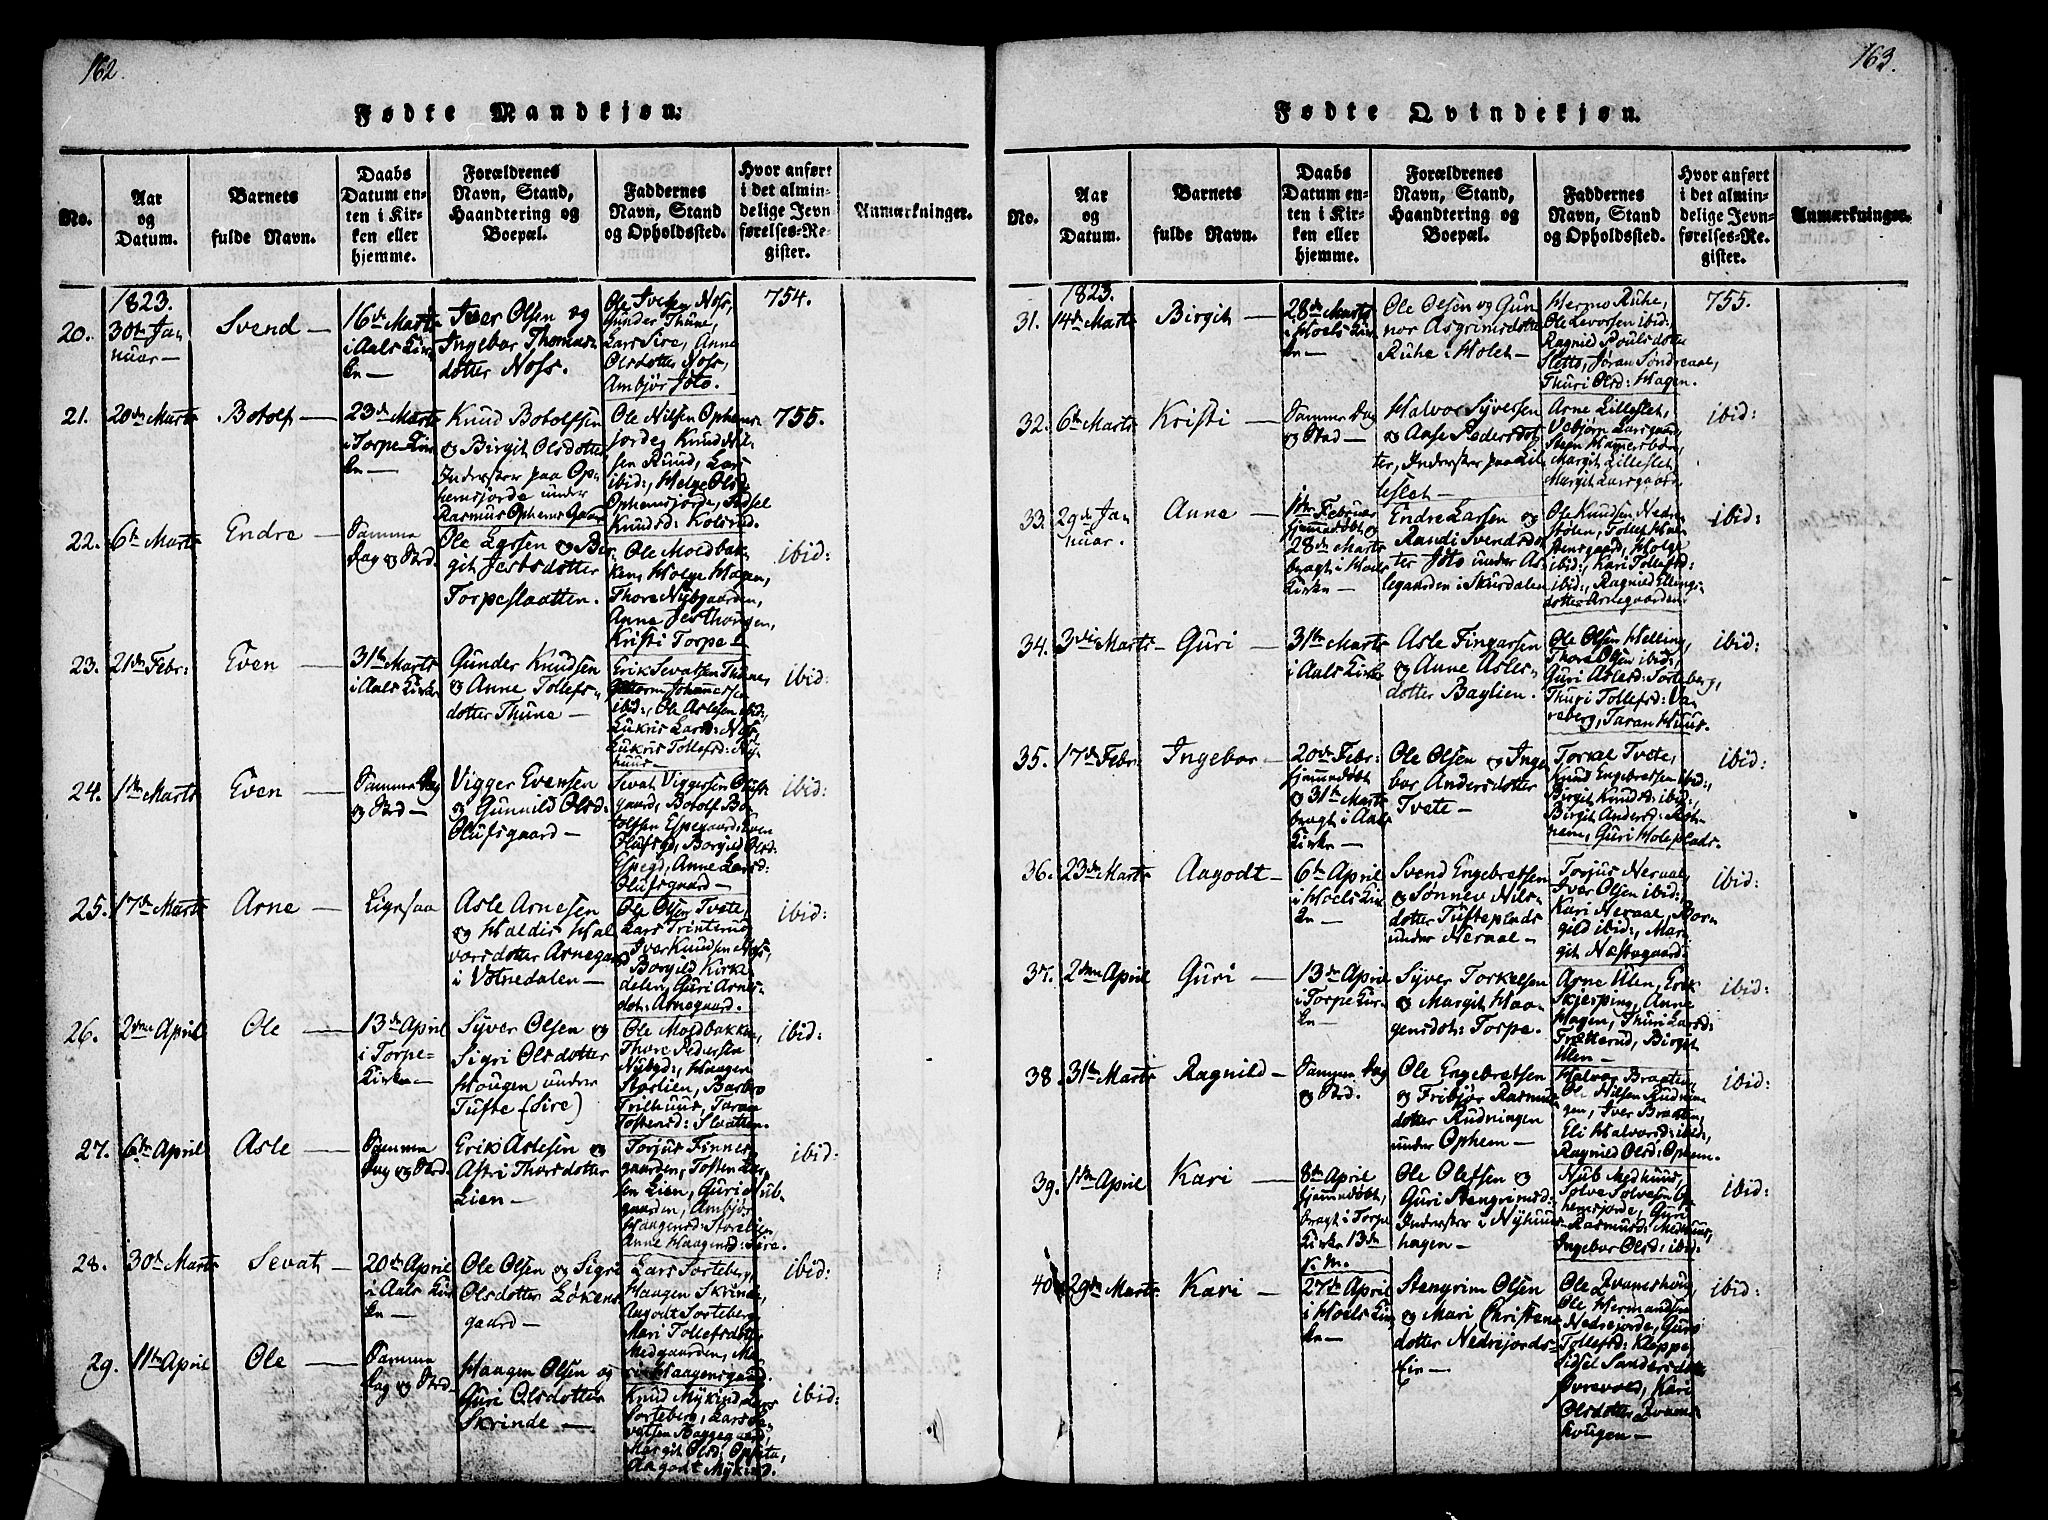 162.
Fødte Mandkjøn.
No.
Aar
og
Datum.
Barnets
fulde Navn.
Daabs
Datum en-
ten i Kir-
ken eller
hjemme.
Forældrenes
Navn, Stand,
Haandtering og
Boepæl.
Faddernes
Navn, Stand
og Opholdssted.
Hvor anført
i det almin-
delige Jevn
førelses-Re
gister.
Anmærkninger.
1823.
20.
30te Ja-
nuar —
Svend —
16de Marts
i Aals Kir
ke —
Iver Olsen og
Ingebor Thomas
dotter Noss.
Gunder Thune,
Lars Sire, Anne
Olsdotter Noss,
Ambjør Joto.
754.
21.
20de Marts
Botolf —
23de Marts
i Torpe Kir
ke —
Knud Botolfsen
og Birgit Olsdotter
Inderster paa Op-
hemsjorde under
Rasmus Ophems Gaar
Ole Nilsen Ophems
jorde, Knud Nil-
sen Ruud, Lars
ibid:, Helge Olsd:
Ophemsjorde, Sidsel
Knudsd: Kolsrud.
755.
22.
6te Marts
Endre —
Samme
Dag og Sted.
Ole Larsen og Bir
git Jestsdotter
Torpeslaatten.
Ole Moldbak-
ken, Helge Hagen,
Thore Nybgaarden,
Kristi Torpe
ibid:
23.
21de Febr:
Even —
31te Marts
i Aals Kirke
Gunder Knudsen
og Anne Tollefs-
dotter Thune —
Erik Sevatsen Thune,
Guttorm Johannessen
ibid:, Ole Aslesen ibid:,
Lukris Larsd: Noss,
Lukris Tollefsd: Ny-
huus —
ibid:
24.
1ste Marts
Even —
Samme Dag
og Sted —
Vigger Evensen
og Gunnild Olsd:
Olufsgaard —
Sevat Viggersen Olufs-
gaard, Botolf Bo-
tolfsen Espegaard, Even
Olufsgd, Borgild Olsd:
Espegd, Anne Larsd:
Olufsgaard —
ibid:
25.
17de Marts
Arne —
Ligesaa
Asle Arnesen
og Haldis Hal
vorsdotter Arnegaard
i Votnedalen —
Ole Olsen Tvete,
Lars Trinterud,
Iver Knudsen Noss,
Borgild Kirke
dalen, Guri Arnes-
dot: Arnegaard.
ibid:
26.
2den April
Ole —
13de April
i Torpe-
Kirke —
Syver Olsen og
Sigri Olsdotter
Hougen under
Tufte (Sire)
Ole Moldbakken,
Thore Pedersen
Nybgd:, Haagen
Storlien, Barbro
Trilhuus, Taran
Tostensd: Slaatten.
ibid:
27.
6te April
Asle —
Samme
Dag og Sted.
Erik Aslesen og
Astri Thorsdotter
Lien —
Torjus Finnes
gaarden, Tosten Lar-
sen Lien, Guri Nub-
gaarden, Ambjør
Haagensd: Storelien,
Anne Haagensd: Sire.
ibid:
28.
30te Marts
Sevat —
20de April
i Aals Kir
ke —
Ole Olsen og Sigri
Olsdotter Løkens
gaard —
Lars Sorteberg,
Haagen Skrinde,
Aagodt Sorteberg,
Mari Tollefsdotter
Medgaarden, Ma-
ri Haagensgaard.
ibid:
29.
11te April
Ole —
Samme
Dag og Sted —
Haagen Olsen og
Guri Olsdotter
Skrinde —
Knud Mykind, Lars
Sorteberg, Lars Se-
vatsen Haggegaard,
Margit Olsd: Opsata,
Aagodt Mykind.
ibid:
163.
Fødte Qvindekjøn.
No.
Aar
og
Datum.
Barnets
fulde Navn.
Daabs
Datum en-
ten i Kir-
ken eller
hjemme.
Forældrenes
Navn, Stand,
Haandtering og
Boepæl.
Faddernes
Navn, Stand
og Opholdssted.
Hvor anført
i det almin-
delige Jevn-
førelses-Re-
gister.
Anmærkninger.
1823.
31.
14de Marts
Birgit —
28de Marts
i Hoels Kir
ke —
Ole Olsen og Gun
nor Asgrimsdotter
Ruhe i Holet —
Hermo Ruhe,
Ole Levorsen ibid:
Ragnild Poulsdotter
Slette, Jøran Sondreaal,
Thuri Olsd: Hagen.
755.
32.
6te Marts
Kristi —
Samme Dag
og Sted —
Halvor Syversen
og Aase Pedersdot
ter, Inderster paa Lil
leslet —
Arne Lilleslet,
Vebjørn Larsgaard,
Margit Lilleslet,
Margit Larsgaard
ibid:
33.
29de Ja
nuar.
Anne —
1ste Februar
hjemmedøbt og
28de Marts
bragt i Hoels
Kirke —
Endre Larsen og
Randi Svendsdot
ter Joto under As
legaarden i Skurdalen
Ole Knudsen Nedre
Stølen, Tollef Hal
stensgaard, Helge
ibid:, Kari Tollefsd:
ibid:, Ragnild Ellings
dotter Arnegaarden
ibid:
34.
3die Marts
Guri —
31te Marts
i Aals Kirke
Asle Fingarsen
og Anne Asles-
dotter Baglien.
Ole Olsen Helling,
Thore Olsen ibid:,
Guri Aslesd: Sorteberg,
Thuri Tollefsd: Va-
reberg, Taran Huus.
ibid:
35.
17de Febr:
Ingebor —
20de Febr:
hjemmedøbt
og 31te Marts
bragt i Aals
Kirke —
Ole Olsen og Inge
bor Andersdotter
Tvete —
Torkal Tvete,
Knud Engebretsen ibid:,
Birgit Knudsd: ibid:,
Birgit Andersd: Rot-
neim, Guri Holeplads.
ibid:
36.
23de Marts
Aagodt —
6te April
i Hoels Kir
ke —
Svend Engebretsen
og Sønnev Nils-
dotter Tufteplads
under Neraal —
Torjus Neraal,
Iver Olsen ibid:
Kari Neraal, Bor-
gild ibid:, Mar-
git Næstegaard.
ibid:
37.
2den April
Guri —
13de April
i Torpe Kir-
ke —
Syver Torkelsen
og Margit Haa-
gensdot: Torpe.
Arne Ulen, Erik
Skjerping, Anne
Hagen, Thuri Larsd:
Frøkerud, Birgit
Ulen —
ibid:
38.
31te Marts
Ragnild —
Samme Dag
og Sted.
Ole Engebretsen
og Fribjør Rasmus
dotter Rudningen
under Ophem —
Halvor Braaten,
Ole Nilsen Rudnin
gen, Iver Braaten,
Eli Halvorsd: ibid:,
Ragnild Olsd: Ophem.
ibid:
39.
1ste April
Kari —
8de April
hjemmedøbt,
bragt i Torpe
Kirke 13de
s. M.
Ole Olefsen og
Guri Stengrimsd:
Inderster i Nyhuus
hagen —
Nub Medhuus,
Solve Solvesen Op-
hemsjorde, Guri
Rasmusd: Medhuus,
Ingebor Olsd: ibid:
ibid:
40
29de Marts
Kari —
27de April
i Hoels Kir
ke —
Stengrim Olsen
og Mari Christens
dotter Nedrejords-
Eie —
Ole Hermandsen
Nedrejorde, Guri
Tollefsd: Kleppe,
Sidsel Sandersdotter
Øvrevold, Kari
Olsdotter Qvams
hougen —
ibid: